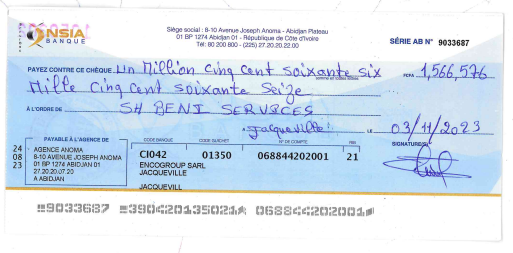 NSIA
BANQUE
Siège social : 8-10 Avenue Joseph Anoma - Abidjan Plateau
01 BP 1274 Abidjan 01 - République de Côte d'Ivoire
Tél: 80 200 800 - (225) 27.20.20.22.00
SÉRIE AB N° 9033687
PAYEZ CONTRE CE CHÈQUE Un Million Cinq Cent soixante six FCFA 1,566,576
somme en toutes lettres
Mille Cinq Cent soixante Seize
À L'ORDRE DE SH BENI SERVICES
Jacqueville LE 03/11/2023
PAYABLE À L'AGENCE DE
24
08
23
AGENCE ANOMA
8-10 AVENUE JOSEPH ANOMA
01 BP 1274 ABIDJAN 01
27.20.20.07.20
A ABIDJAN
CODE BANQUE CODE GUICHET N° DE COMPTE RIB
CI042 01350 068844202001 21
ENCOGROUP SARL
JACQUEVILLE
JACQUEVILL
SIGNATURE(S)
9033687 390420135021 068844202001